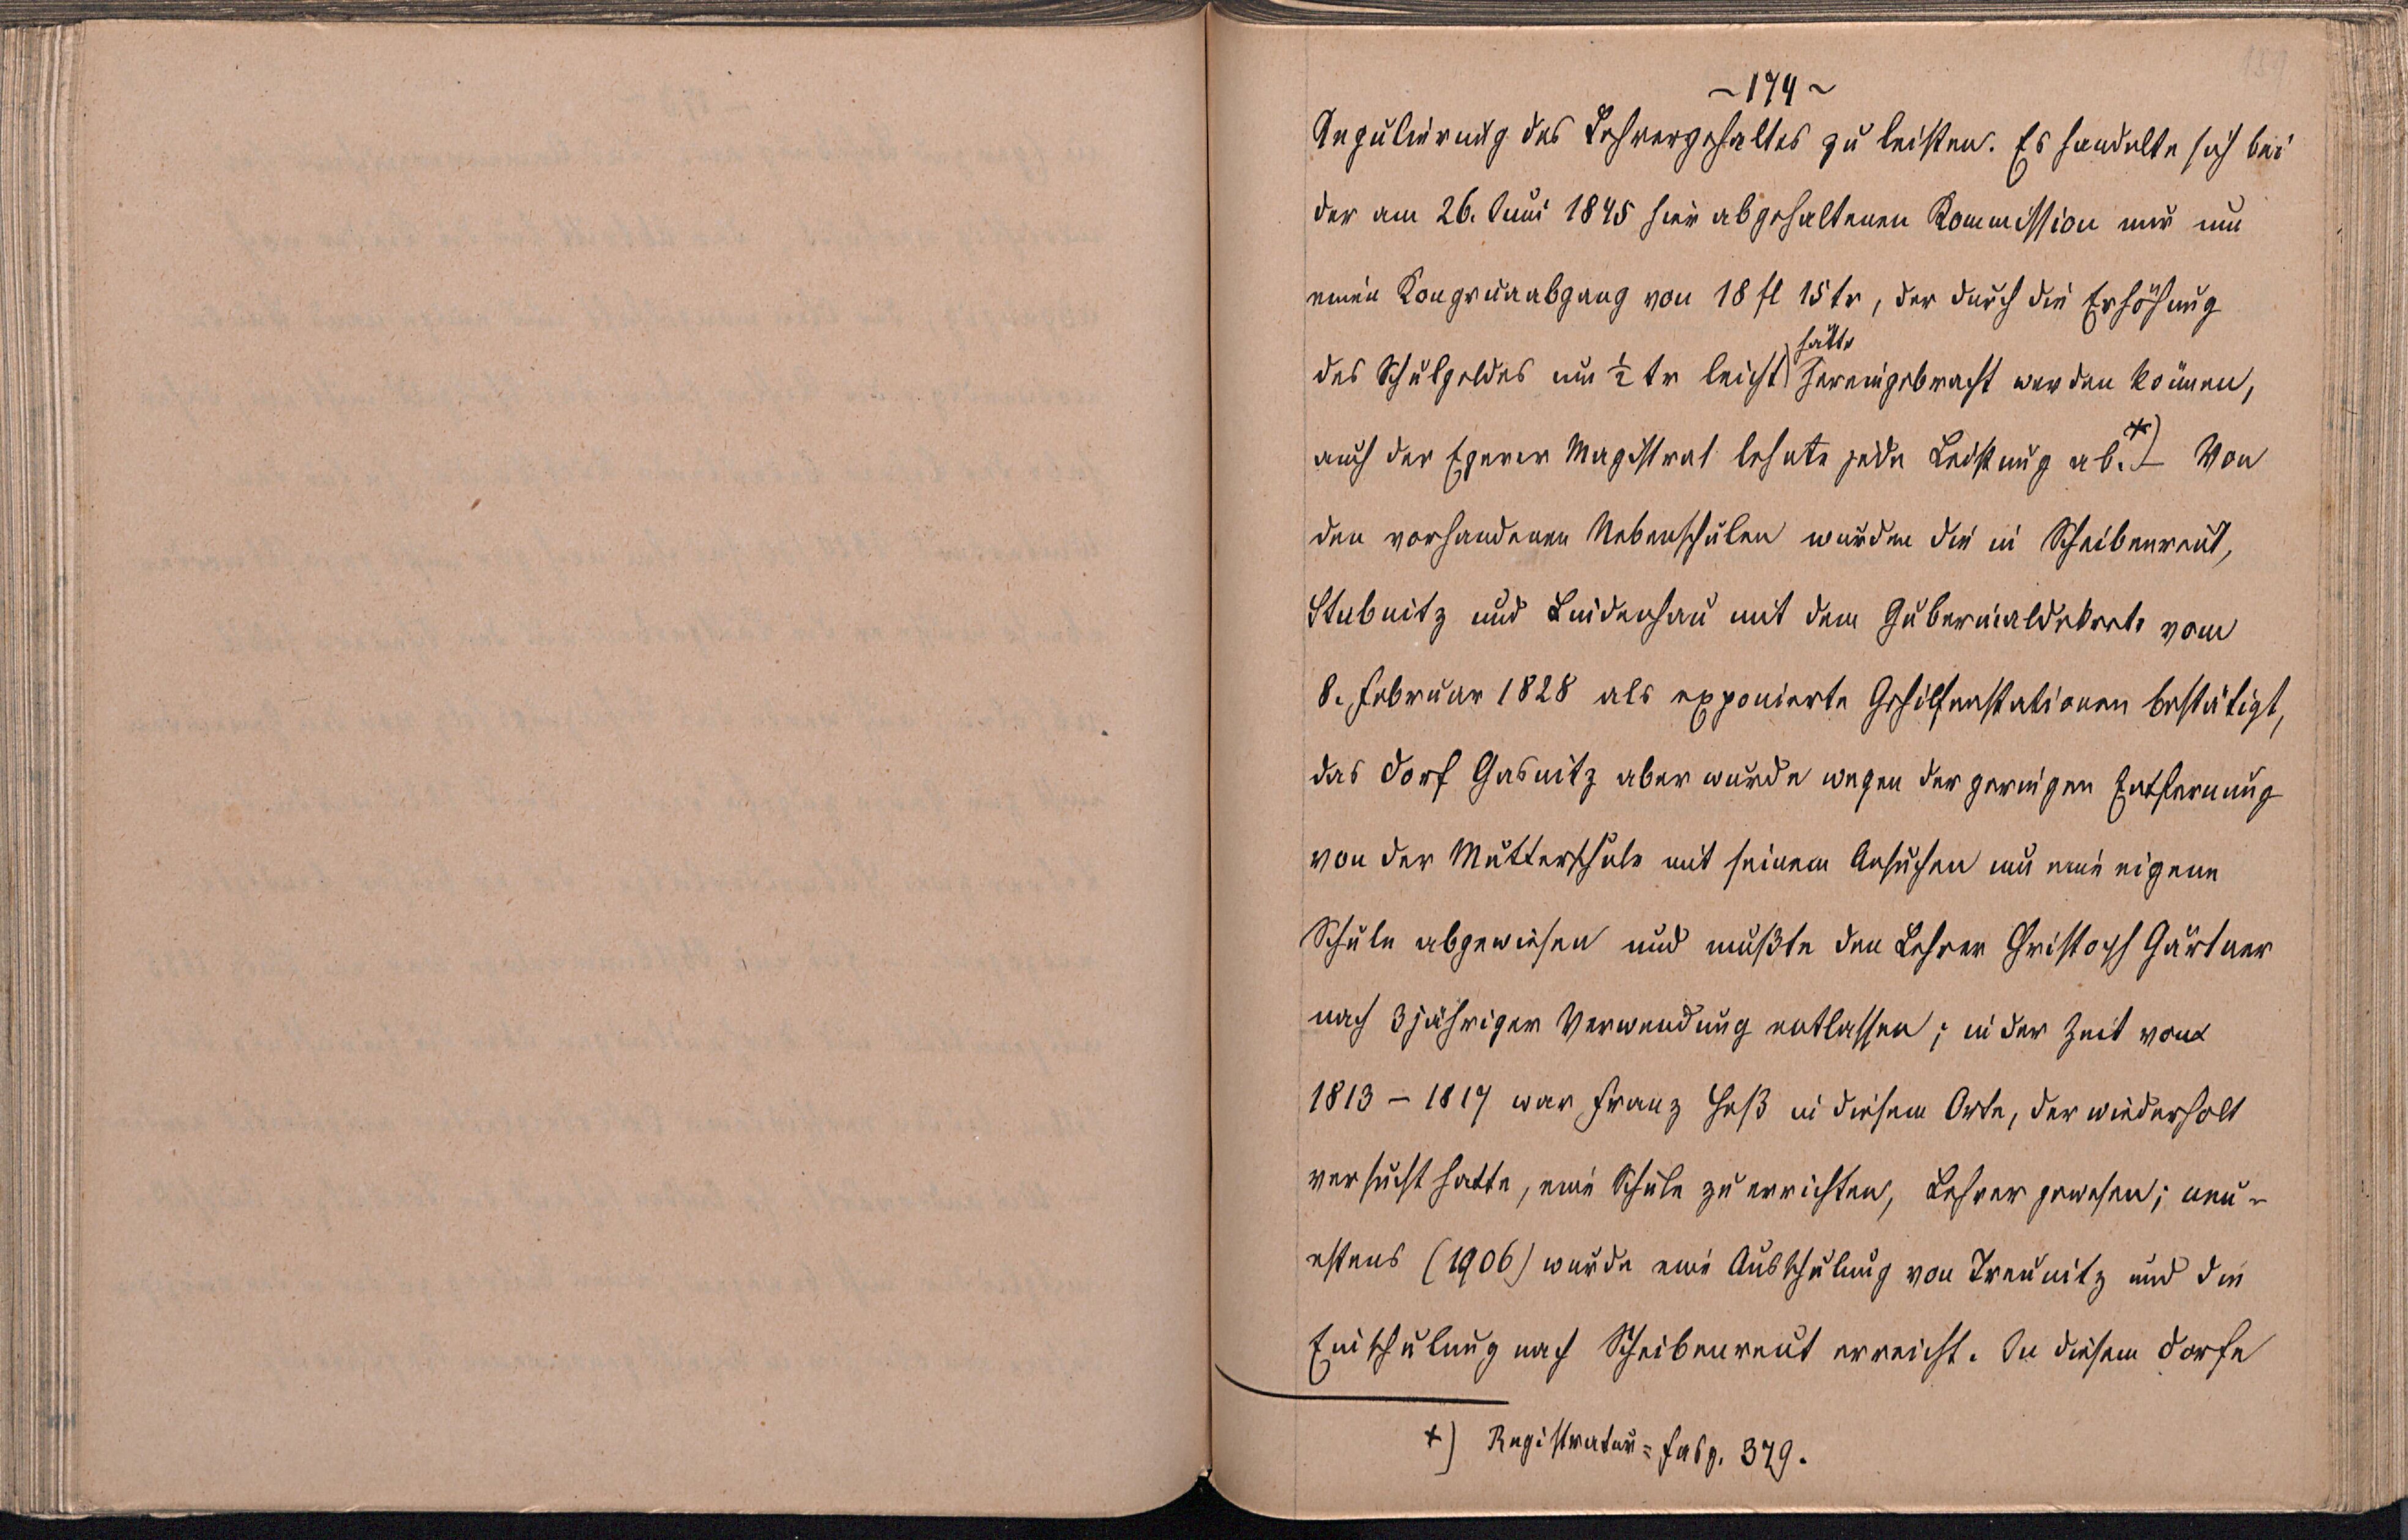 159
~ 174 ~
Regulierung des Lehrergehaltes zu leisten. Es handelte sich bei
der am 26. Juni 1845 hier abgehaltenen Kommission nur um
einen Kongruaabgang von 18 fl 15 kr, der durch die Erhöhung
des Schulgeldes um ½ kr leicht hätte hereingebracht werden können,
auch der Egerer Magistrat lehnte jede Leistung ab.*) – Von
den vorhandenen Nebenschulen wurden die in Scheibenreut,
Stabnitz und Lindenhau mit dem Gubernialdekrete vom
8. Februar 1828 als exponierte Gehilfenstationen bestätigt,
das Dorf Gasnitz aber wurde wegen der geringen Entfernung
von der Mutterschule mit seinem Ansuchen um eine eigene
Schule abgewiesen und mußte den Lehrer Christoph Gärtner
nach 3jähriger Verwendung entlassen; in der Zeit von
1813 – 1817 war Franz Heß in diesem Orte, der wiederholt
versucht hatte, eine Schule zu errichten, Lehrer gewesen; neu-
estens (1906) wurde eine Ausschulung von Treunitz und die
Einschulung nach Scheibenreut erreicht. In diesem Dorfe
*) Registratur = Fasz. 379.